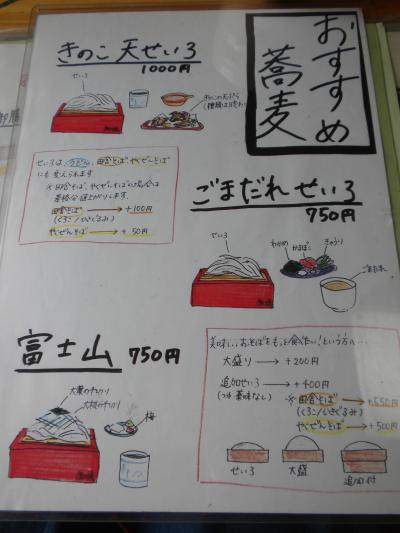 おすすめ
蕎麦
きのこ天せいろ
1000円
せいろ
きのこ天ぷら
ごまだれせいろ
750円
せいろ
わかめ
かまぼこ
きゅうり
ごまだれ
せいろは、うどん、田舎そば、やくぜんそば
にも変えられます。
※田舎そば、やくぜんそばの場合は
差額分値上がりします。
田舎そば → +100円
(くるごといきぐるみ)
やくぜんそば → +50円
富士山 750円
大葉の千切り
大根の千切り
梅
美味しいおそばをもっと食べたい!という方へ…
大盛り → +200円
追加せいろ → +400円
(つゆ・薬味なし)
※田舎そば → +550円
やくぜんそば → +500円
せいろ
大盛
追加付